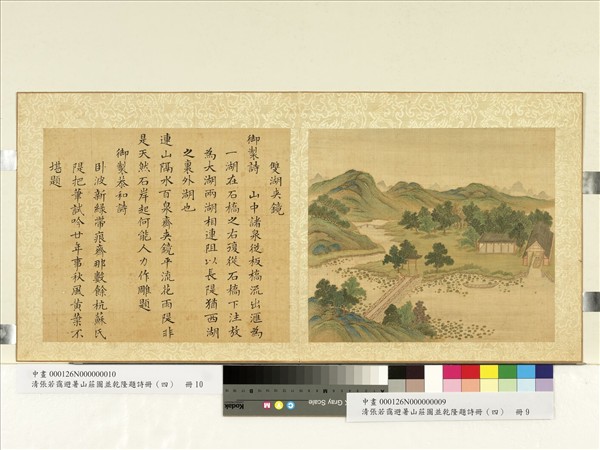 雙湖夾鏡
御製詩 山中諸泉從板橋流出滙為
一湖在石橋之右復從石橋下注放
為大湖兩湖相連阻以長隄猶西湖
之裏外湖也
連山隔水百泉齊夾鏡平流花雨隄非
是天然石岸起何能人力作雕題
御製恭和詩
卧波新綠帶痕齊那數餘杭蘇氏
隄把筆試吟廿年事秋風黃葉不
堪題
中畫 000126N000000010
清張若靄避暑山莊圖並乾隆題詩冊(四) 冊10
Kodak
Gray Scale
C
Y
M
中畫 000126N000000009
清張若靄避暑山莊圖並乾隆題詩冊(四) 冊9